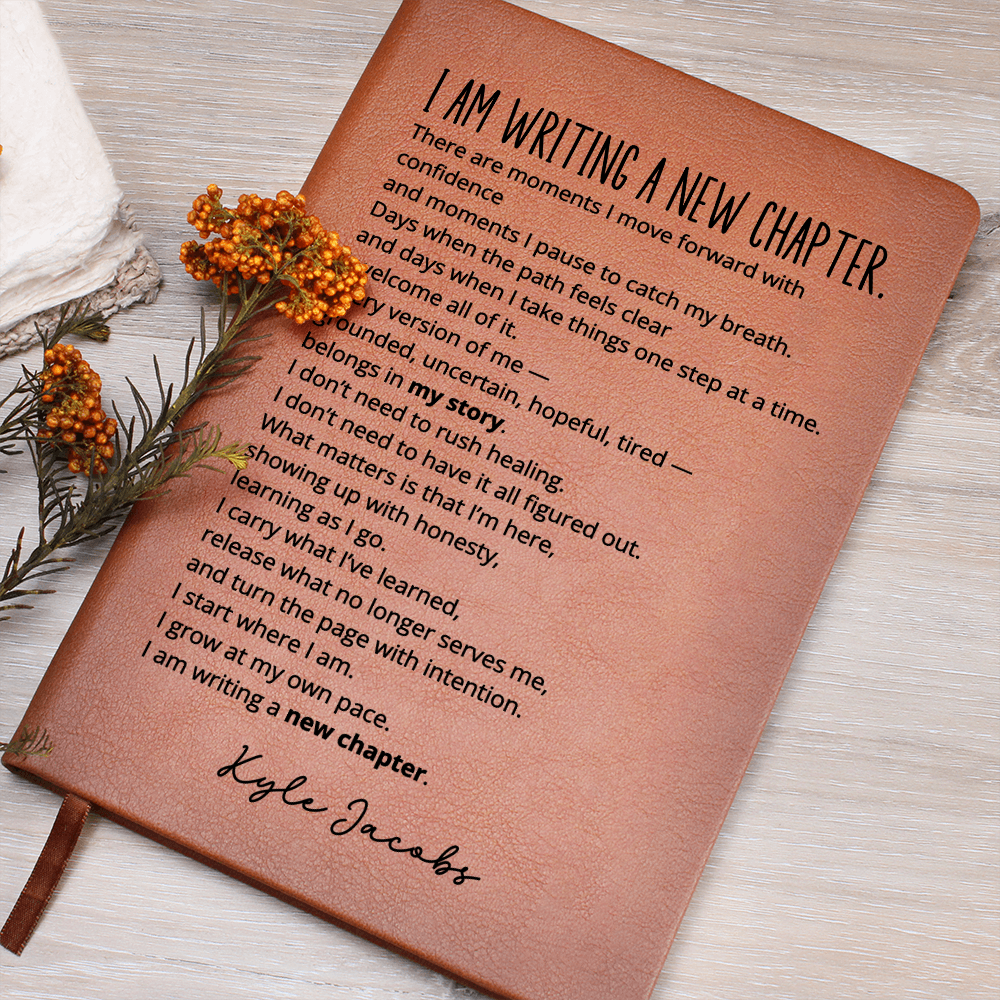 I AM WRITING A NEW CHAPTER.
There are moments I move forward with
confidence
and moments I pause to catch my breath.
Days when the path feels clear
and days when I take things one step at a time.
welcome all of it.
version of me —
grounded, uncertain, hopeful, tired —
belongs in my story.
I don't need to rush healing.
I don't need to have it all figured out.
What matters is that I'm here,
showing up with honesty,
learning as I go.
I carry what I've learned,
release what no longer serves me,
and turn the page with intention.
I start where I am.
I grow at my own pace.
I am writing a new chapter.
Kyle Jacobs